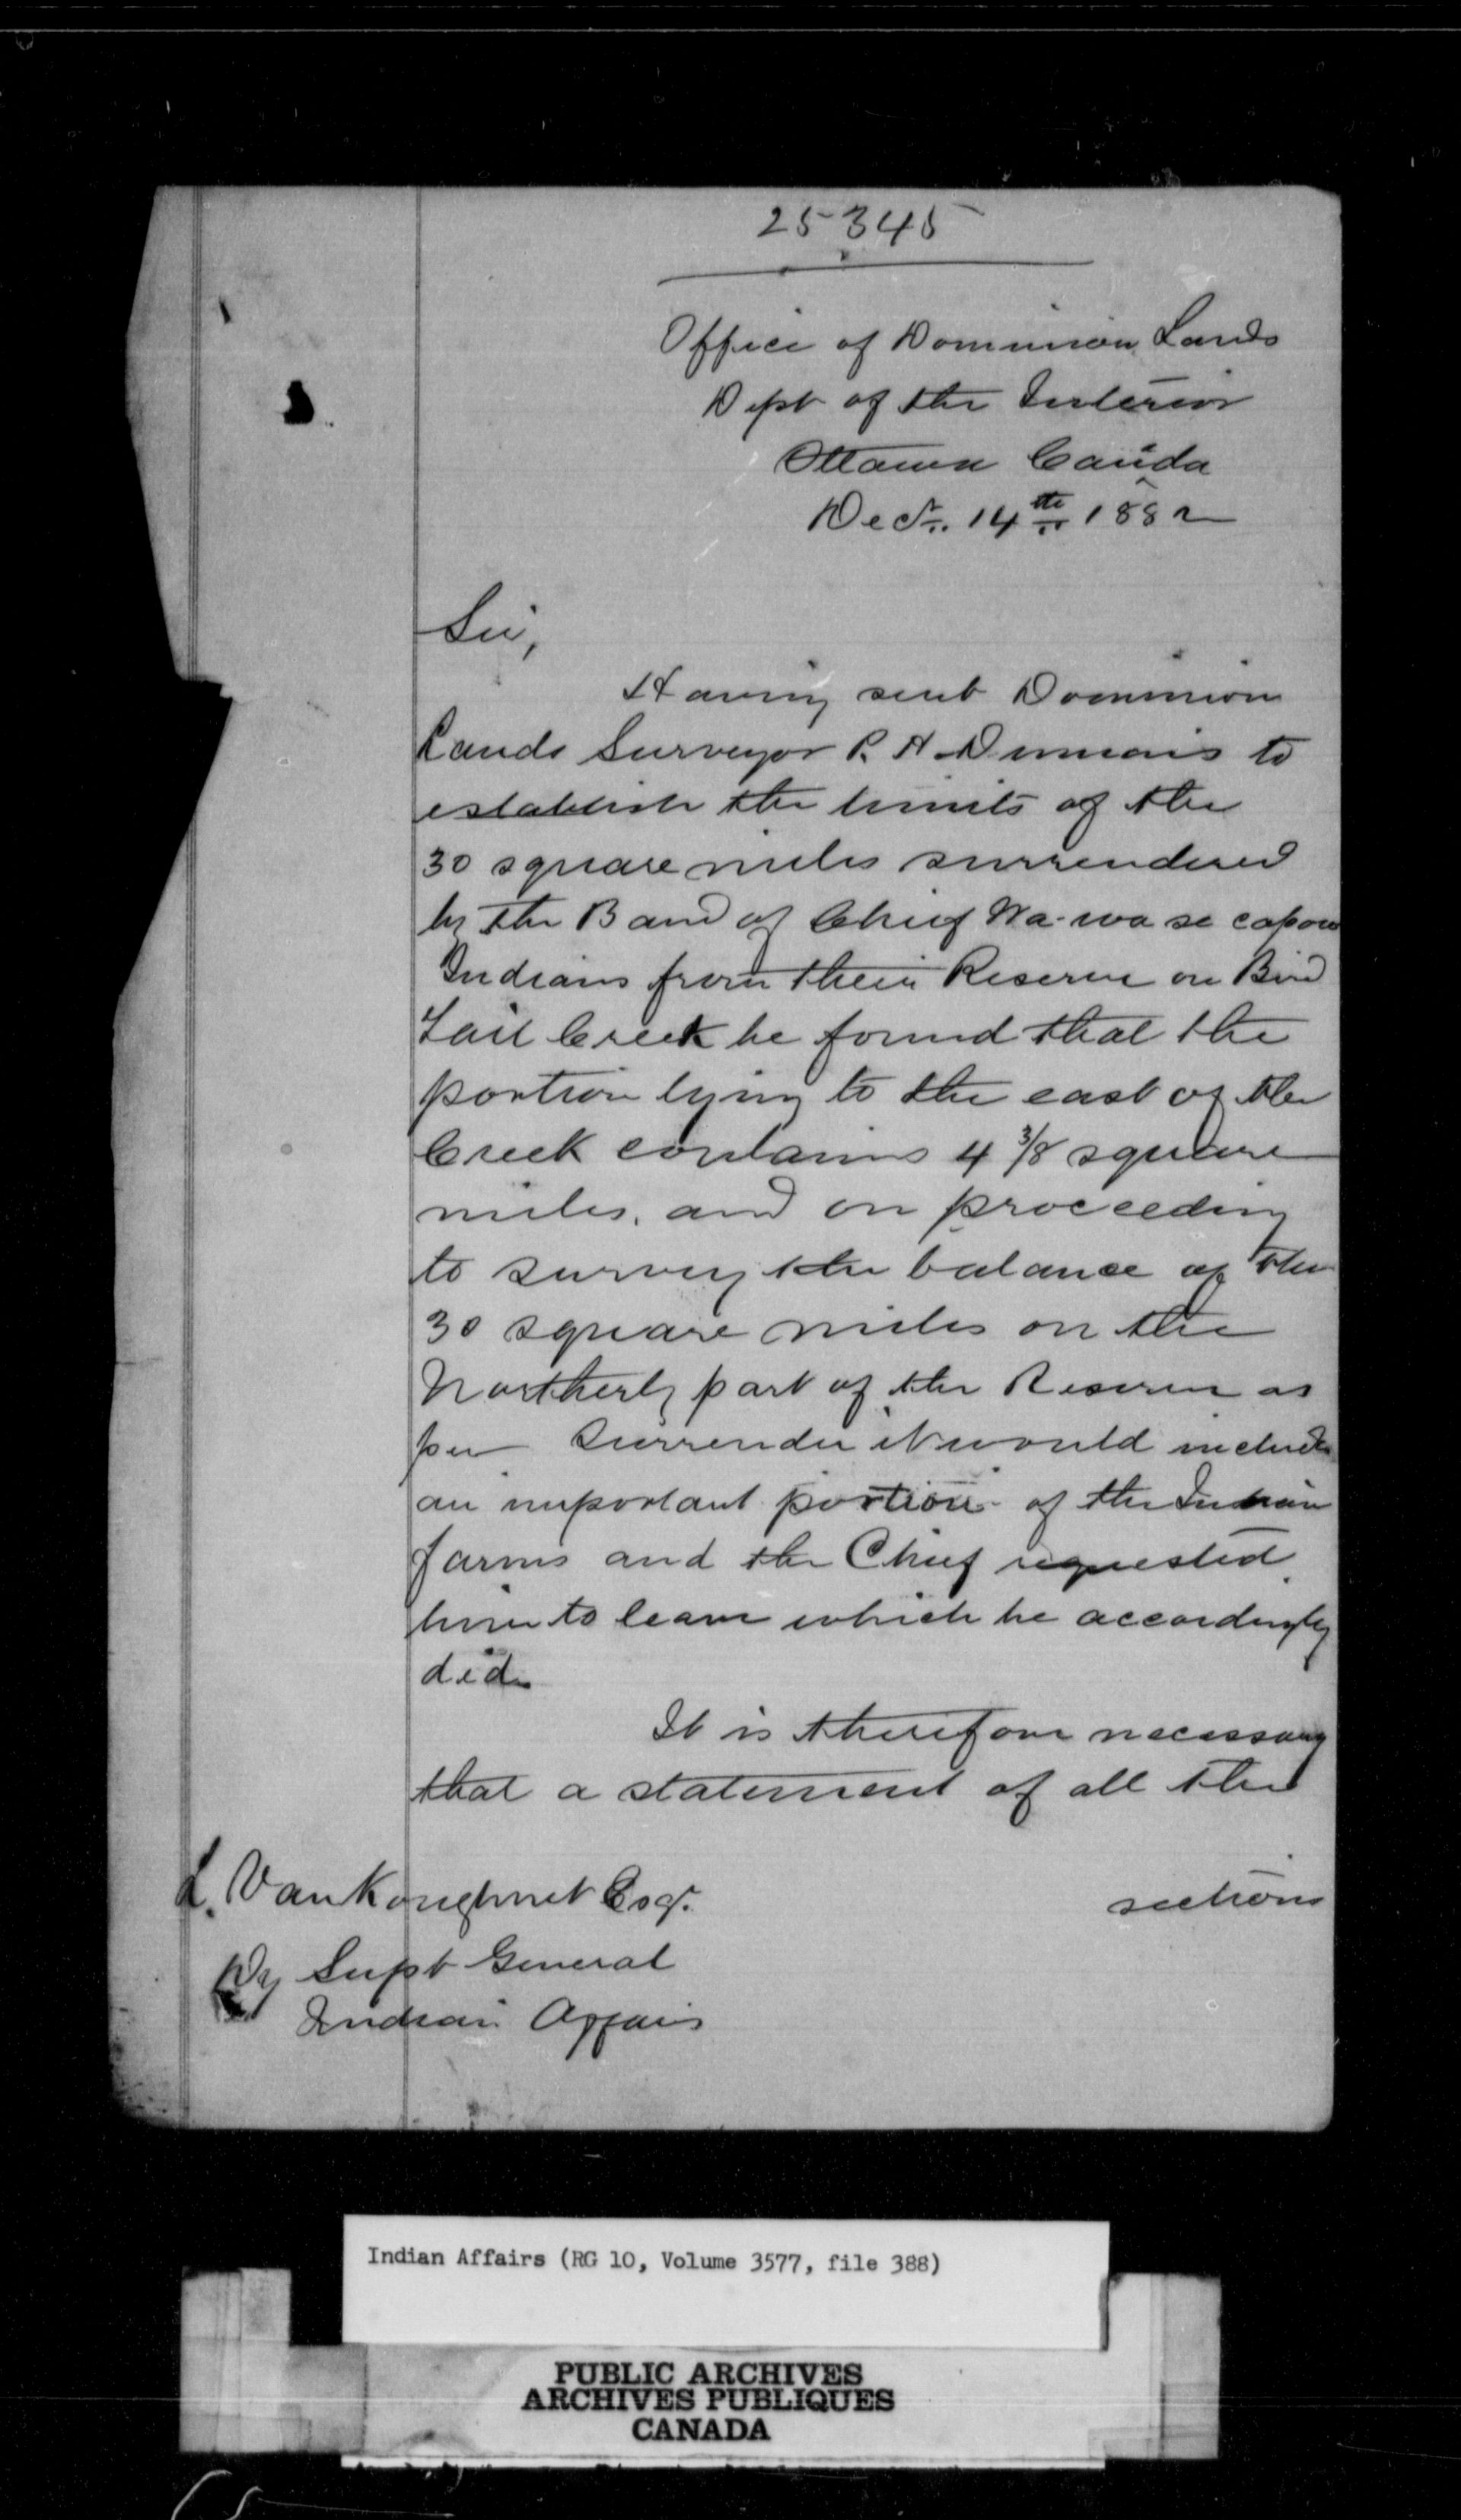 25345
Office of Dominion Lands
Dept of the Interior
Ottawa Canada
Decr. 14th 1882
Sir,
Having sent Dominion
Lands Surveyor P. H. Dumais to
establish the limits of the
30 square miles surrendered
by the Band of Chief Wa-wa se capow
Indians from their Reserve on Bird
Tail Creek he found that the
portion lying to the east of the
Creek contains 4 3/8 square
miles, and on proceeding
to survey the balance of the
30 square miles on the
Northerly part of the Reserve as
per Surrender it would include
an important portion of the Indian
farms and the Chief requested
him to leave which he accordingly
did.
It is therefore necessary
that a statement of all the
sections
L. VanKoughnet Esqr.
Dy Supt General
Indian Affairs
Indian Affairs (RG 10, Volume 3577, file 388)
PUBLIC ARCHIVES
ARCHIVES PUBLIQUES
CANADA